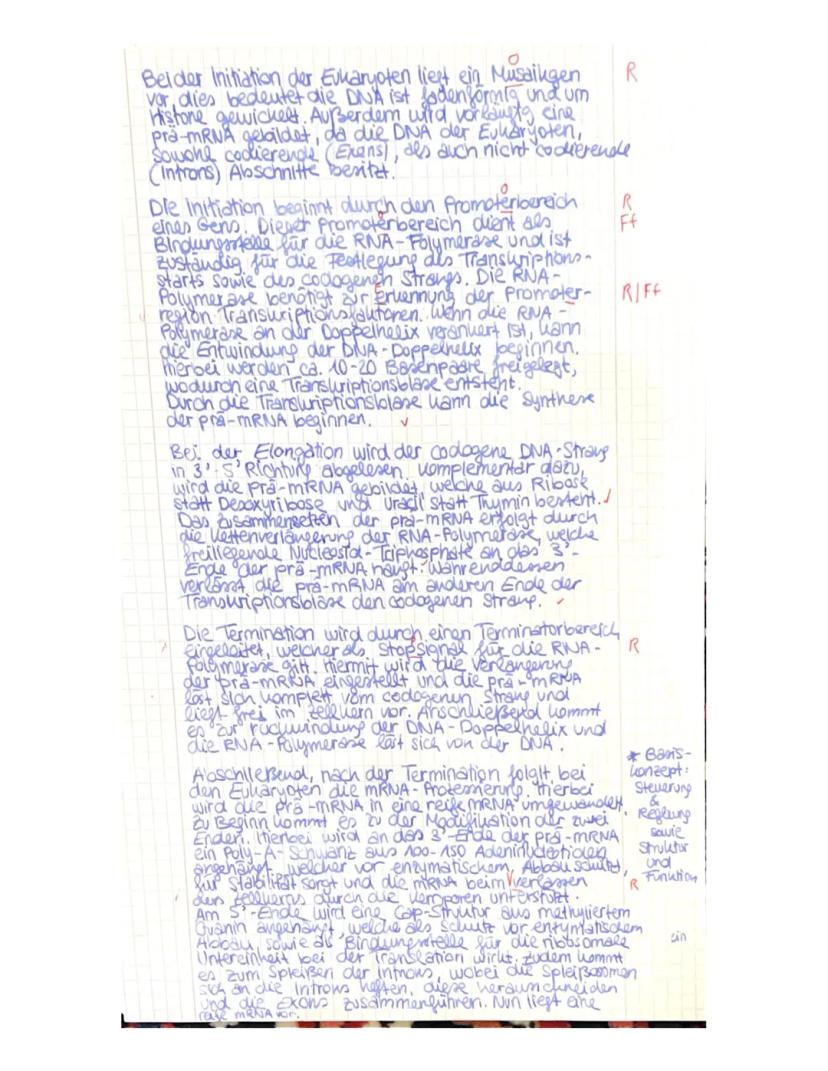 Bei der Initiation der Eukaryoten liegt ein Musaikgen
vor, dies bedeutet die DNA ist fadenförmig und um
Histone gewickelt. Außerdem wird vorläufig eine
prä-mRNA gebildet, da die DNA der Eukaryoten,
sowohl codierende (Exons), als auch nicht codierende
(Introns) Abschnitte besitzt.
o
R
Die Initiation beginnt durch den Promoterbereich
eines Gens. Dieser Promoterbereich dient als
Bindungsstelle für die RNA-Polymerase und ist
zuständig für die Festlegung des Transkriptions-
starts sowie des codogenen Strangs. Die RNA-
Polymerase benötigt zur Erkennung der Promoter-
region Transkriptionsfaktoren. Wenn die RNA-
Polymerase an der Doppelhelix verankert ist, kann
die Entwindung der DNA-Doppelhelix beginnen.
Hierbei werden ca. 10-20 Basenpaare freigelegt,
wodurch eine Transkriptionsblase entsteht.
Durch die Transkriptionsblase kann die Synthese
der prä-mRNA beginnen. ✓
o
R
Ff
R/Ff
Bei der Elongation wird der codogene DNA-Strang
in 3'-5' Richtung abgelesen, komplementär dazu,
wird die prä-mRNA gebildet, welche aus Ribose
statt Desoxyribose und Uracil statt Thymin besteht. ✓
Das Zusammensetzen der prä-mRNA erfolgt durch
die Kettenverlängerung der RNA-Polymerase, welche
freiliegende Nucleosid-Triphosphate an das 3'-
Ende der prä-mRNA hängt. Währenddessen
verlässt die prä-mRNA am anderen Ende der
Transkriptionsblase den codogenen Strang. ✓
Die Termination wird durch einen Terminatorbereich
eingeleitet, welcher als Stopsignal für die RNA-
Polymerase gilt. Hiermit wird die Verlängerung
der prä-mRNA eingestellt und die prä-mRNA
löst sich komplett vom codogenen Strang und
liegt frei im Zellkern vor. Anschließend kommt
es zur Rückwindung der DNA-Doppelhelix und
die RNA-Polymerase löst sich von der DNA.
R
Abschließend, nach der Termination folgt bei
den Eukaryoten die mRNA-Prozessierung. Hierbei
wird die prä-mRNA in eine reife mRNA umgewandelt.
Zu Beginn kommt es zu der Modifikation der zwei
Enden. Hierbei wird an das 3'-Ende der prä-mRNA
ein Poly-A-Schwanz aus 100-150 Adeninnucleotiden
angehängt, welcher vor enzymatischem Abbau schützt,
für Stabilität sorgt und die mRNA beim verlassen
des Zellkerns durch die Kernporen unterstützt.
Am 5'-Ende wird eine Cap-Struktur aus methyliertem
Guanin angehängt, welche als Schutz vor enzymatischem
Abbau, sowie als Bindungsstelle für die ribosomale
Untereinheit bei der Translation wirkt. Zudem kommt
es zum Spleißen der Introns, wobei die Spleißosomen
sich an die Introns heften, diese herausschneiden
und die Exons zusammenführen. Nun liegt eine
reife mRNA vor.
* Basis-
konzept:
Steuerung
&
Reglung
sowie
Struktur
und
Funktion
R
ein